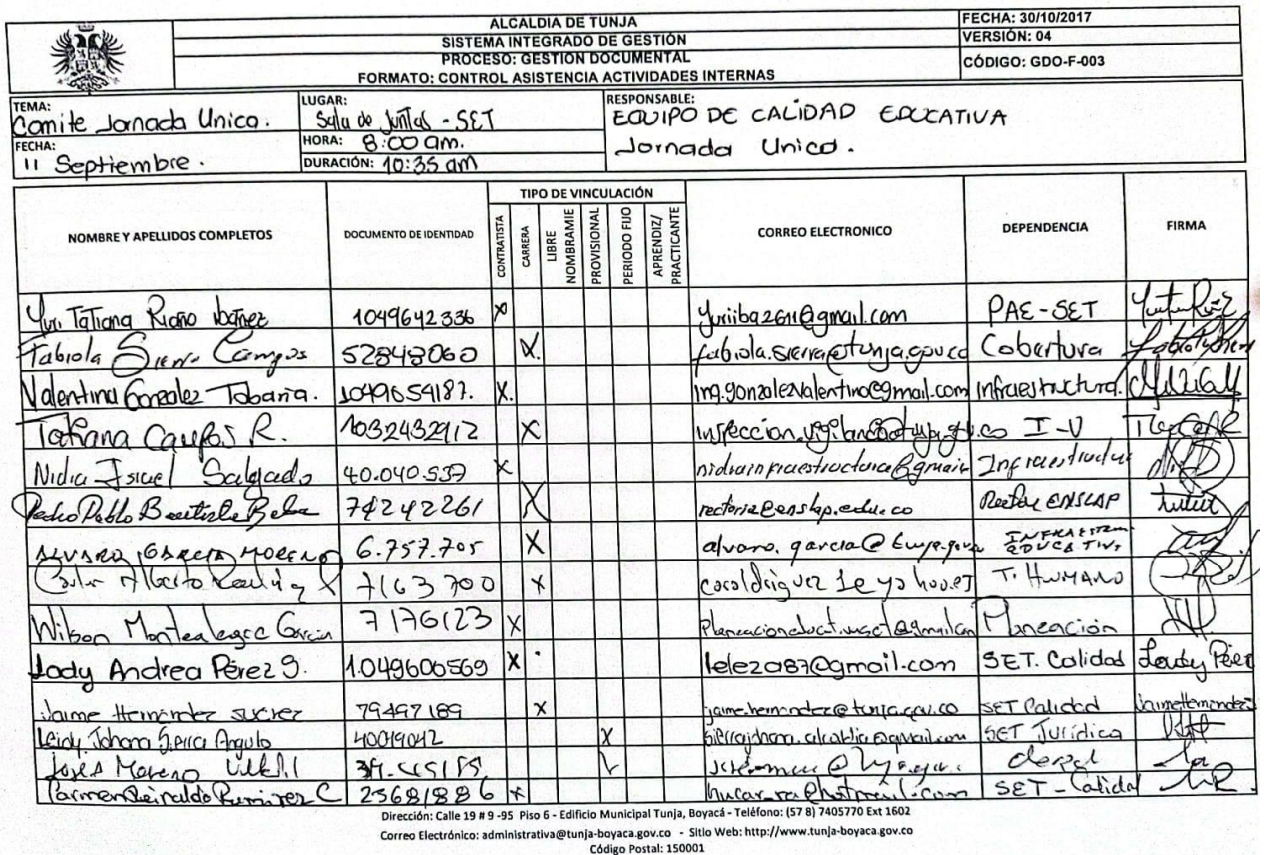 ALCALDIA DE TUNJA
SISTEMA INTEGRADO DE GESTIÓN
PROCESO: GESTION DOCUMENTAL
FORMATO: CONTROL ASISTENCIA ACTIVIDADES INTERNAS
FECHA: 30/10/2017
VERSIÓN: 04
CÓDIGO: GDO-F-003
TEMA:
Comite Jornada Unica.
FECHA:
11 Septiembre.
LUGAR:
Sala de Juntas - SET
HORA: 8:00 am.
DURACIÓN: 10:35 am
RESPONSABLE:
EQUIPO DE CALIDAD EDUCATIVA
Jornada Unica.
NOMBRE Y APELLIDOS COMPLETOS
DOCUMENTO DE IDENTIDAD
TIPO DE VINCULACIÓN
CONTRATISTA
CARRERA
LIBRE NOMBRAMIE
PROVISIONAL
PERIODO FIJO
APRENDIZ/ PRACTICANTE
CORREO ELECTRONICO
DEPENDENCIA
FIRMA
Yuri Tatiana Riaño Ibañez 1049642336 X PAE-SET
Fabiola Sierra Campos 52848060 X. fabiola.sierra@tunja.gov.co Cobertura
Valentina Gonzalez Tobaria. 1049654187. X. ing.gonzalezvalentina@gmail.com Infraestructura.
Tatiana R. 1032432912 X I-V
Nidia Isabel Salgado 40.040.537 X Infraestructura
Pedro Pablo Bautista 74242261 X rectoria@enslap.edu.co Rector ENSLAP
ALVARO GARCIA MORENO 6.757.705 X INFRAESTRUC EDUCATIVA
Carlos Alberto 7163700 X T. HUMANO
Wilson Montealegre Garcia 7176123 X Planeación
Lady Andrea Pérez S. 1.049600569 X lele2087@gmail.com SET. Calidad Leidy Pérez
Jaime Hernández suarez 79497189 X jaime.hernandez@tunja.gov.co SET Calidad Jaime Hernandez S
Leidy Johana Sierra Angulo 40049042 X SET Jurídica
Moreno
Carmen Reinaldo Ramirez C 23681886 X SET-Calidad
Dirección: Calle 19 # 9 -95 Piso 6 - Edificio Municipal Tunja, Boyacá - Teléfono: (57 8) 7405770 Ext 1602
Correo Electrónico: administrativa@tunja-boyaca.gov.co - Sitio Web: http://www.tunja-boyaca.gov.co
Código Postal: 150001